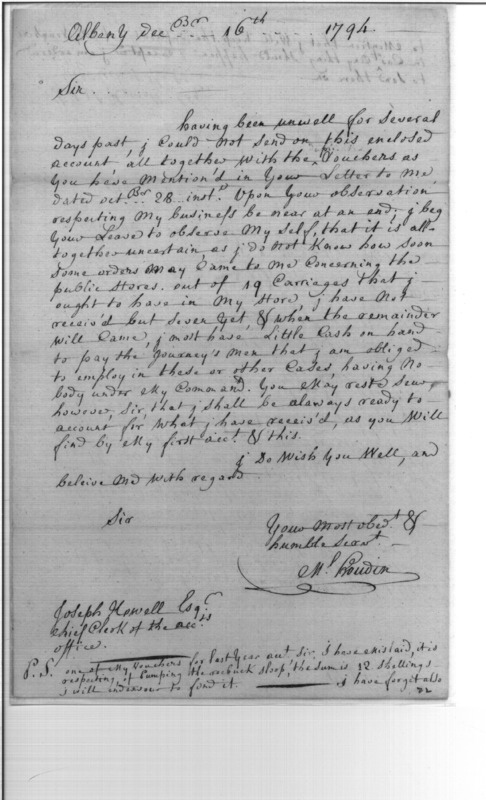 Albany Dec.Br 16th 1794
Sir.
having been unwell for Several
days past, j could Not Send on this enclosed
account, all together with the Vouchers as
You have Mention'd in Your Letter to Me
dated oct.Br 28 inst.t Upon Your observation
respecting My business be near at an end; j beg
Your Leave to observe My Self, that it is all-
together uncertain, as j do Not Know how Soon
Some orders May Came to Me Concerning the
public Stores. out of 19 Carriages that j
ought to have in My Store, j have Not
receiv'd but Seven Yet, & when the remainder
will Came, j most have Little Cash on hand
to pay the Journey's Men that j am obliged
to employ in these or other Cases, having No
body under My Command. You May rest Sew,
however, Sir, that j Shall be alaways ready to
account for what j have receiv'd, as you Will
find by My first acc.t & this.
j Do Wish You Well, and
beleive Me with regard
Sir
Your Most obed.t &
humble Serv.t
Ml. Houdin
Joseph Howell Esq.r
Chief Clerk of the acc.ts
office.
P.S. one of My Vouchers for last Year aut Sir. I have mislaid, it is
respecting of Pumping the roebuck Sloop, the Sum is 12 Shellings
j will indeavour to find it. j have forgit also